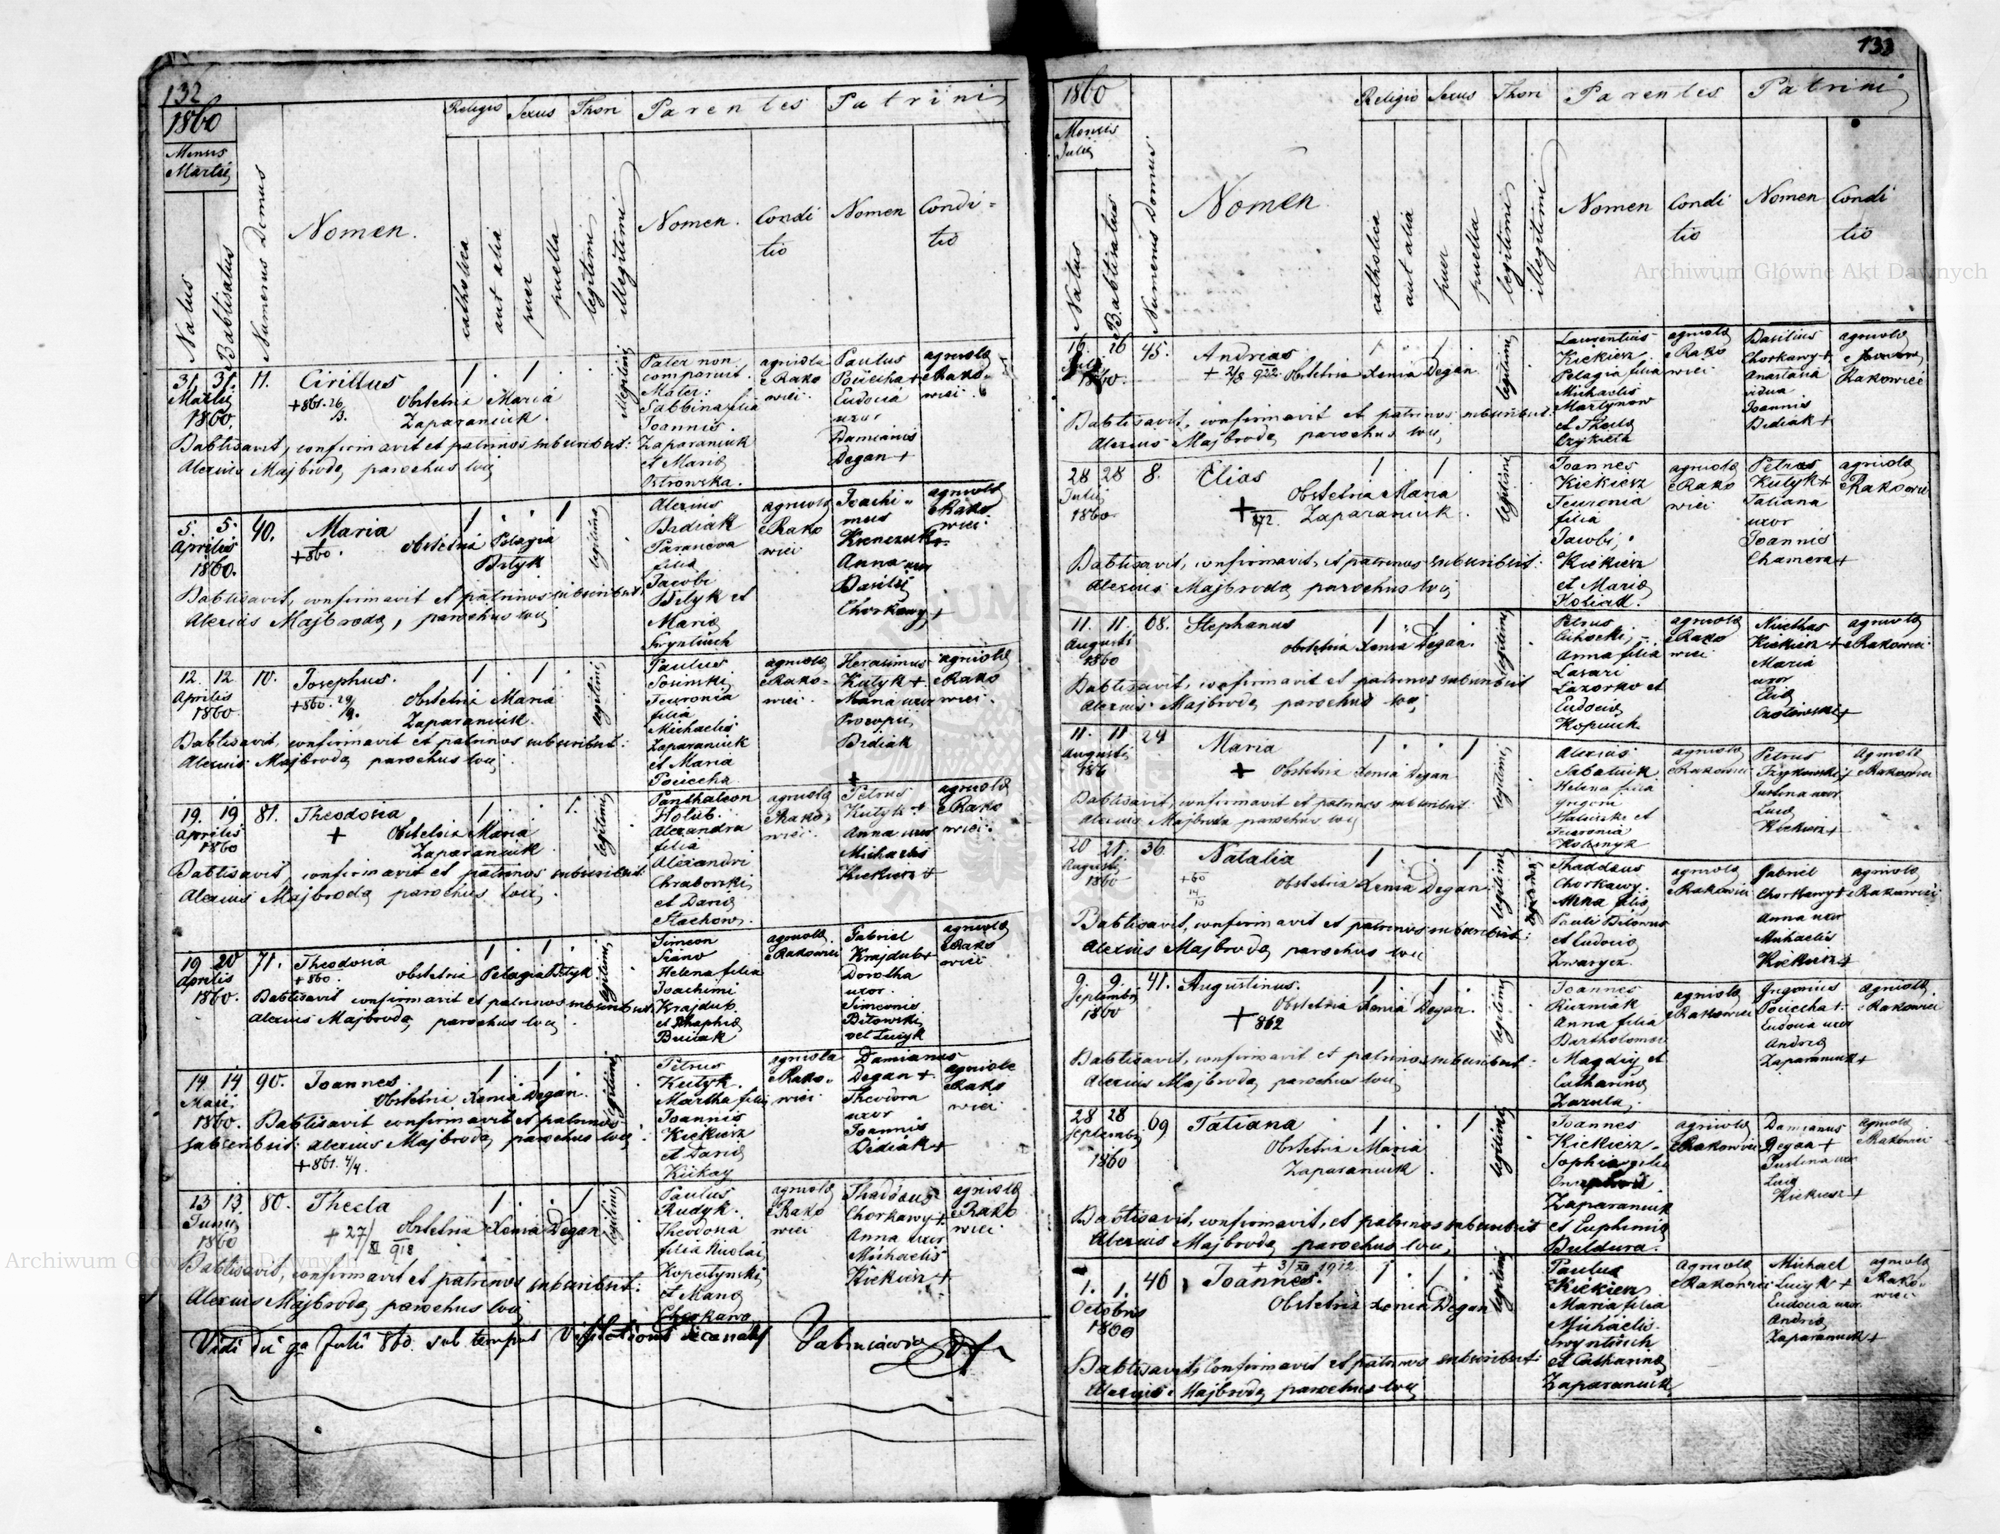 132
1860
Mensis
Martij
Natus
Babtisatus
Numerus Domus
Nomen.
Religio Sexus Thori Parentes Patrini
catholica
aut alia
puer
puella
legitimi
illegitimi
Nomen. Conditio Nomen Conditio
31. 31. 11. Cirillus 1 . 1 .
Martij
1860.
+861. 26/3.
Obstetrix Maria
Zaparaniuk
Babtisavit, confirmavit et patrinos subscribsit:
Alexius Majbroda, parochus loci
illegitimi
Pater non
comparuit.
Mater:
Sabbina filia
Joannis
Zaparaniuk
et Maria
Ostrowska.
agricola
e Rako
wiei.
Paulus
Pociecha +
Eudocia
uxor
Damianis
Degan +
agricola
e Rako-
wiei.
5. 5. 40. Maria 1 . . 1
Aprilis
1860.
+860.
obstetrix Pelagia
Bityk
Babtisavit, confirmavit et patrinos subscribsit:
Alexius Majbroda, parochus loci
legitimi
Alexius
Didiak
Parancva
filia
Jacobi
Bityk et
Maria
Hryntiuch
agricola
e Rako
wiei
Joachi-
mus
Krenczuk +
Anna uxor
Basilii
Chorkawy +
agricola
e Rako
wiei.
12. 12 10. Josephus. 1 . 1 .
Aprilis
1860
+860. 29/9.
Obstetrix Maria
Zaparaniuk.
Babtisavit, confirmavit et patrinos subscribsit:
Alexius Majbroda, parochus loci
legitimi
Paulus
Tosimski
Feuronia
filia
Michaelis
Zaparaniuk
et Maria
Pociecha
agricola
e Rako-
wiei.
Herasimus
Kutyk +
Maria uxor
Procopii
Didiak
+
agricola
e Rako
wiei.
19. 19 81. Theodosia 1 . . 1.
Aprilis
1860
+
Obstetrix Maria
Zaparaniuk
Babtisavit, confirmavit et patrinos subscribsit
Alexius Majbroda, parochus loci
legitimi
Panthaleon
Holub.
Alexandra
filia
Alexandri
Chraborski
et Daria
Stachow.
agricola
e Rako
wiei.
Petrus
Kutyk +
Anna uxor
Michaelis
Kiekisz +
agricola
e Rako
wiei.
19 20 71. Theodosia 1 . 1 .
Aprilis
1860.
+860.
obstetrix Pelagia Bityk
Babtisavit confirmavit et patrinos subscribsit.
Alexius Majbroda, parochus loci
legitimi
Simeon
Siano
Helena filia
Joachimi
Krajdub.
et Raphia
Buciak
agricola
e Rakowiei
Gabriel
Krajdub +
Dorotha
uxor.
Simeonis
Bitowski
vel Luzyk
agricola
e Rako
wiei
14. 14 90. Joannes. 1 . 1 .
Maii.
1860.
Obstetrix Xenia Degan.
Babtisavit confirmavit et patrinos
subscribsit: Alexius Majbroda, parochus loci
+861. 4/4.
legitimi
Petrus
Kutyk.
Martha filia
Joannis
Kiekisz
et Daria
Kuckay
agricola
e Rako-
wiei
Damianus
Degan +
Theodora
uxor
Joannis
Didiak +
agricola
e Rako
wiei
13 13. 80. Thecla 1 . . 1
Junij
1860
+27/XI 918
Obstetrix Xenia Degan
Babtisavit, confirmavit et patrinos subscribsit:
Alexius Majbroda, parochus loci
legitimi
Paulus
Rudyk.
Theodosia
filia Nicolai
Kopestynski
et Maria
Chorkawa
agricola
e Rako
wiei
Thaddaeus
Chorkawy +
Anna uxor
Michaelis
Kiekisz +
agricola
e Rako
wiei
Vidi die 9a Julii 860. sub tempus visitationis decanalis
133
1860
Mensis
Julij
Natus
Babtisatus
Numerus Domus
Nomen
Religio Sexus Thori Parentes Patrini
catholica
aut alia
puer
puella
legitimi
illegitimi
Nomen Conditio Nomen Conditio
16. 16 45. Andreas 1 . 1 .
Julij
1860.
+ 2/8 922. Obstetrix Xenia Degan
Babtisavit, confirmavit et patrinos subscribsit:
Alexius Majbroda, parochus loci
legitimi
Laurentius
Kiekisz.
Pelagia filia
Michaelis
Martynow
et Thecla
agricola
e Rako
wiei
Basilius
Chorkawy +
Anastasia
vidua
Joannis
Didiak +
agricola
Rakowiei
28 28 8. Elias 1 . 1 .
Julij
1860.
+ 872.
Obstetrix Maria
Zaparaniuk.
Babtisavit, confirmavit, et patrinos subscribsit:
Alexius Majbroda, parochus loci
legitimi
Joannes
Kiekisz
Feuronia
filia
Jacobi
Kiekisz
et Maria
Kosiak.
agricola
e Rako
wiei
Petrus
Kutyk +
Tatiana
uxor
Joannis
Chamera +
agricola
e Rakowiei
11. 11. 68. Stephanus 1 . 1 .
Augusti
1860
obstetrix Xenia Degan.
Babtisavit, confirmavit et patrinos subscribsit
Alexius Majbroda, parochus loci
legitimi
Petrus
Anna filia
Lazari
Lazorko et
Eudocia
Kopciuk
agricola
e Rako
wiei
Nicethas
Kiekisz +
Maria
uxor
agricola
e Rakowiei
11. 11 24 Maria 1 . . 1
Augusti
186
+ Obstetrix Xenia Degan
Babtisavit, confirmavit et patrinos subscribsit
Alexius Majbroda parochus loci
legitimi
Alexius
Sabatiuk
Helena filia
et
Feuronia
agricola
e Rakowiei
Petrus
Justina uxor.
Luca
Kiekisz +
Agricola
e Rakowiei
20 21. 36. Natalia 1 . . 1
Augusti
1860
+60
14/12
Obstetrix Xenia Degan
Babtisavit, confirmavit et patrinos subscribsit:
Alexius Majbroda, parochus loci
legitimi
Thaddaeus
Chorkawy.
Pauli Bitowus
et Eudocia
Zwarycz.
agricola
e Rakowiei
Gabriel
Chorkawy +
Anna uxor
Michaelis
Kiekisz +
agricola
e Rakowiei
9 9. 41. Augustinus. 1 . 1 .
Septembris
1860
Obstetrix Xenia Degan.
+ 862
Babtisavit, confirmavit et patrinos subscribsit:
Alexius Majbroda, parochus loci
legitimi
Joannes
Kuzniak
Anna filia
Bartholomei
Magdij et
Catharina
Zazula.
agricola
e Rakowiei
Gregorius
Pociecha +
Eudocia uxor
Andrea
Zaparaniuk +
agricola
e Rakowiei
28 28 69 Tatiana 1 . . 1
Septembris
1860
Obstetrix Maria
Zaparaniuk
Babtisavit, confirmavit, et patrinos subscribsit
Alexius Majbroda, parochus loci
legitimi
Joannes
Kiekisz
Sophia filia
Zaparaniuk
et Euphimia
Buldura.
agricola
e Rakowiei
Damianus
Degan +
Justina uxor
Luca
Kiekisz +
agricola
e Rakowiei
+ 3/XII 1912
1. 1. 46 Joannes. 1 . 1 .
Octobris
1860
Obstetrix Xenia Degan
Babtisavit, Confirmavit et patrinos subscribsit:
Alexius Majbroda, parochus loci
legitimi
Paulus
Kiekisz
Maria filia
Michaelis
Hryntiuch
et Catharina
Zaparaniuk
agricola
e Rakowiei
Michael
Luzyk +
Eudocia uxor
Andrea
Zaparaniuk +
agricola
e Rako-
wiei
Archiwum Główne Akt Dawnych
Archiwum Główne Akt Dawnych